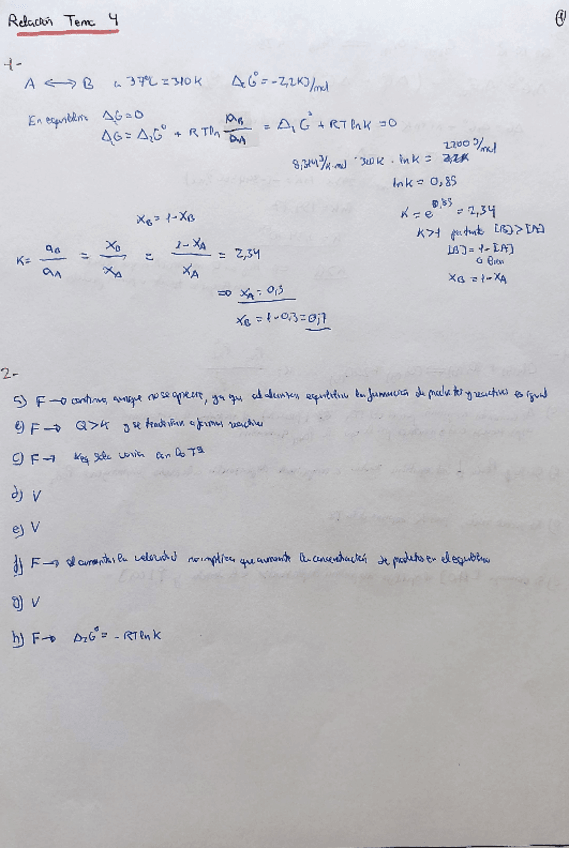 Relación Tema 4
1-
A ⟷ B a 37ºC = 310K ΔrGº = -2,2KJ/mol
En equilibrio ΔrG = 0
ΔrG = ΔrGº + RTln aB/aA = ΔrGº + RTlnK = 0
8,314 J/K·mol · 310K · lnK = 2200 J/mol
lnK = 0,85
K = e^0,85 = 2,34
K>1 por tanto [B]>[A]
[B] = 1-[A]
o bien
XB = 1-XA
XB = 1-XB
K = aB/aA = XB/XA = 1-XA/XA = 2,34
⇒ XA = 0,3
XB = 1-0,3 = 0,7
2-
F → continua, aunque no se aprecie, ya que al alcanzar equilibrio la formación de productos y reactivos es igual
F → Q>K y se tendería a formar reactivos
c) F → Keq solo varía con la Tª
d) V
e) V
f) F → al aumentar la velocidad no implica que aumente la concentración de productos en el equilibrio
g) V
h) F → ΔrGº = -RTlnK